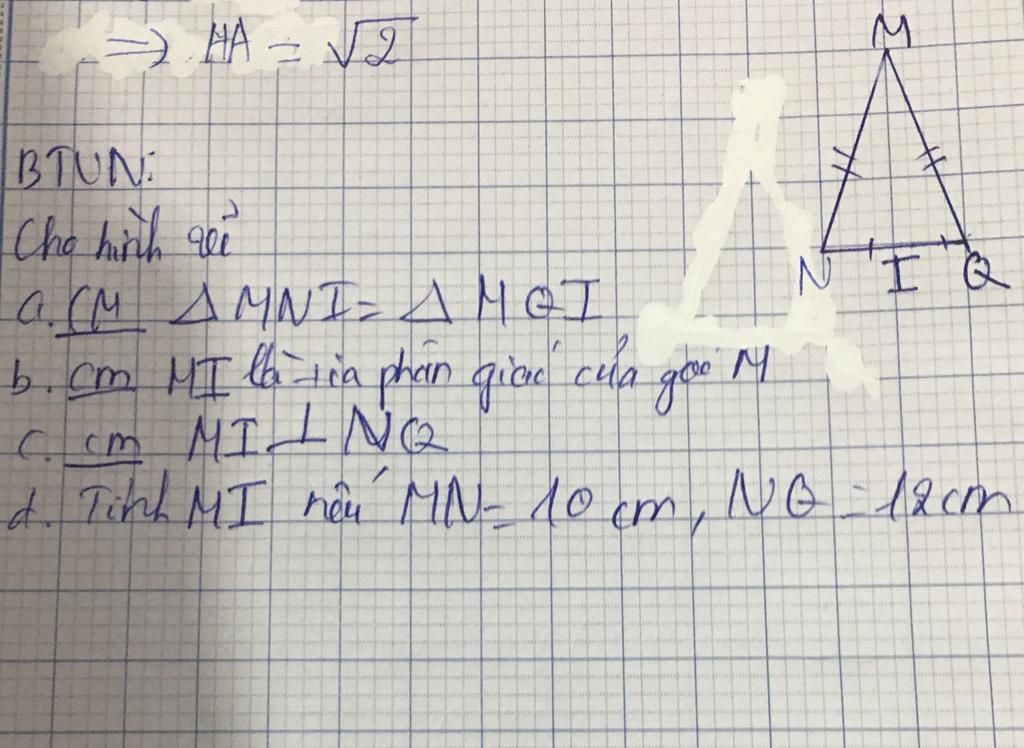 ⇒ HA = √2
M
BTVN:
Cho hình vẽ
N I Q
a. CM Δ MNI = Δ MQI
b. cm MI là tia phân giác của góc M
c. cm MI ⊥ NQ
d. Tính MI nếu MN = 10 cm, NQ = 12cm